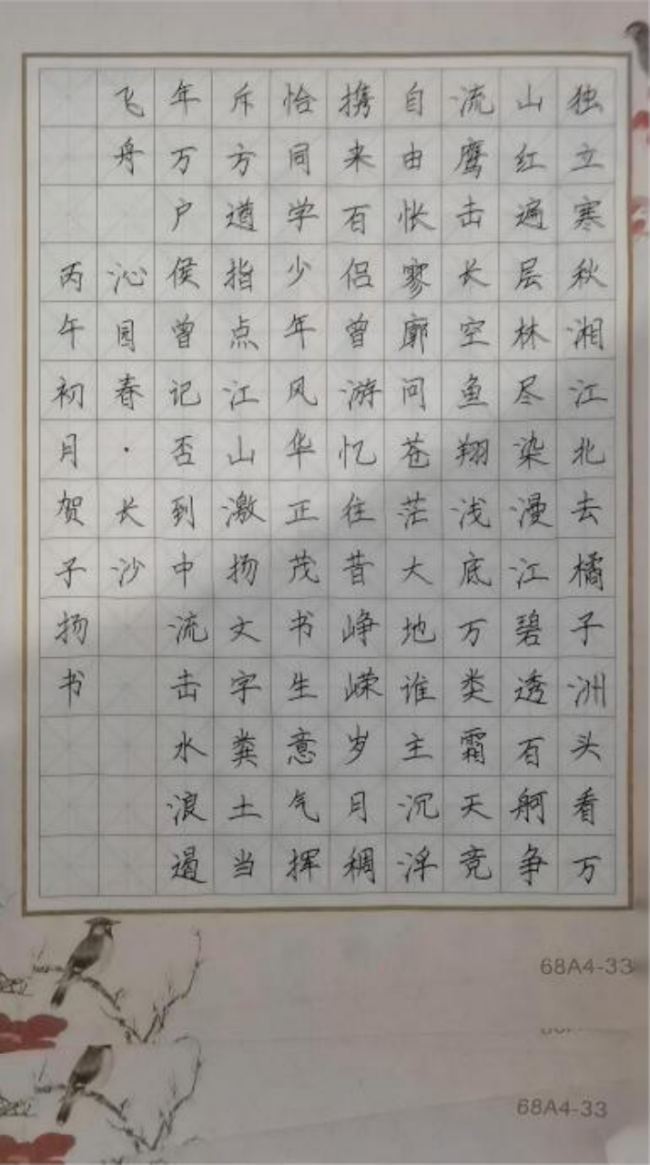 独立寒秋湘江北去橘子洲头看万
山红遍层林尽染漫江碧透百舸争
流鹰击长空鱼翔浅底万类霜天竞
自由怅寥廓问苍茫大地谁主沉浮
携来百侣曾游忆往昔峥嵘岁月稠
恰同学少年风华正茂书生意气挥
斥方遒指点江山激扬文字粪土当
年万户侯曾记否到中流击水浪遏
飞舟 沁园春·长沙
丙午初月贺子扬书
68A4-33
68A4-33